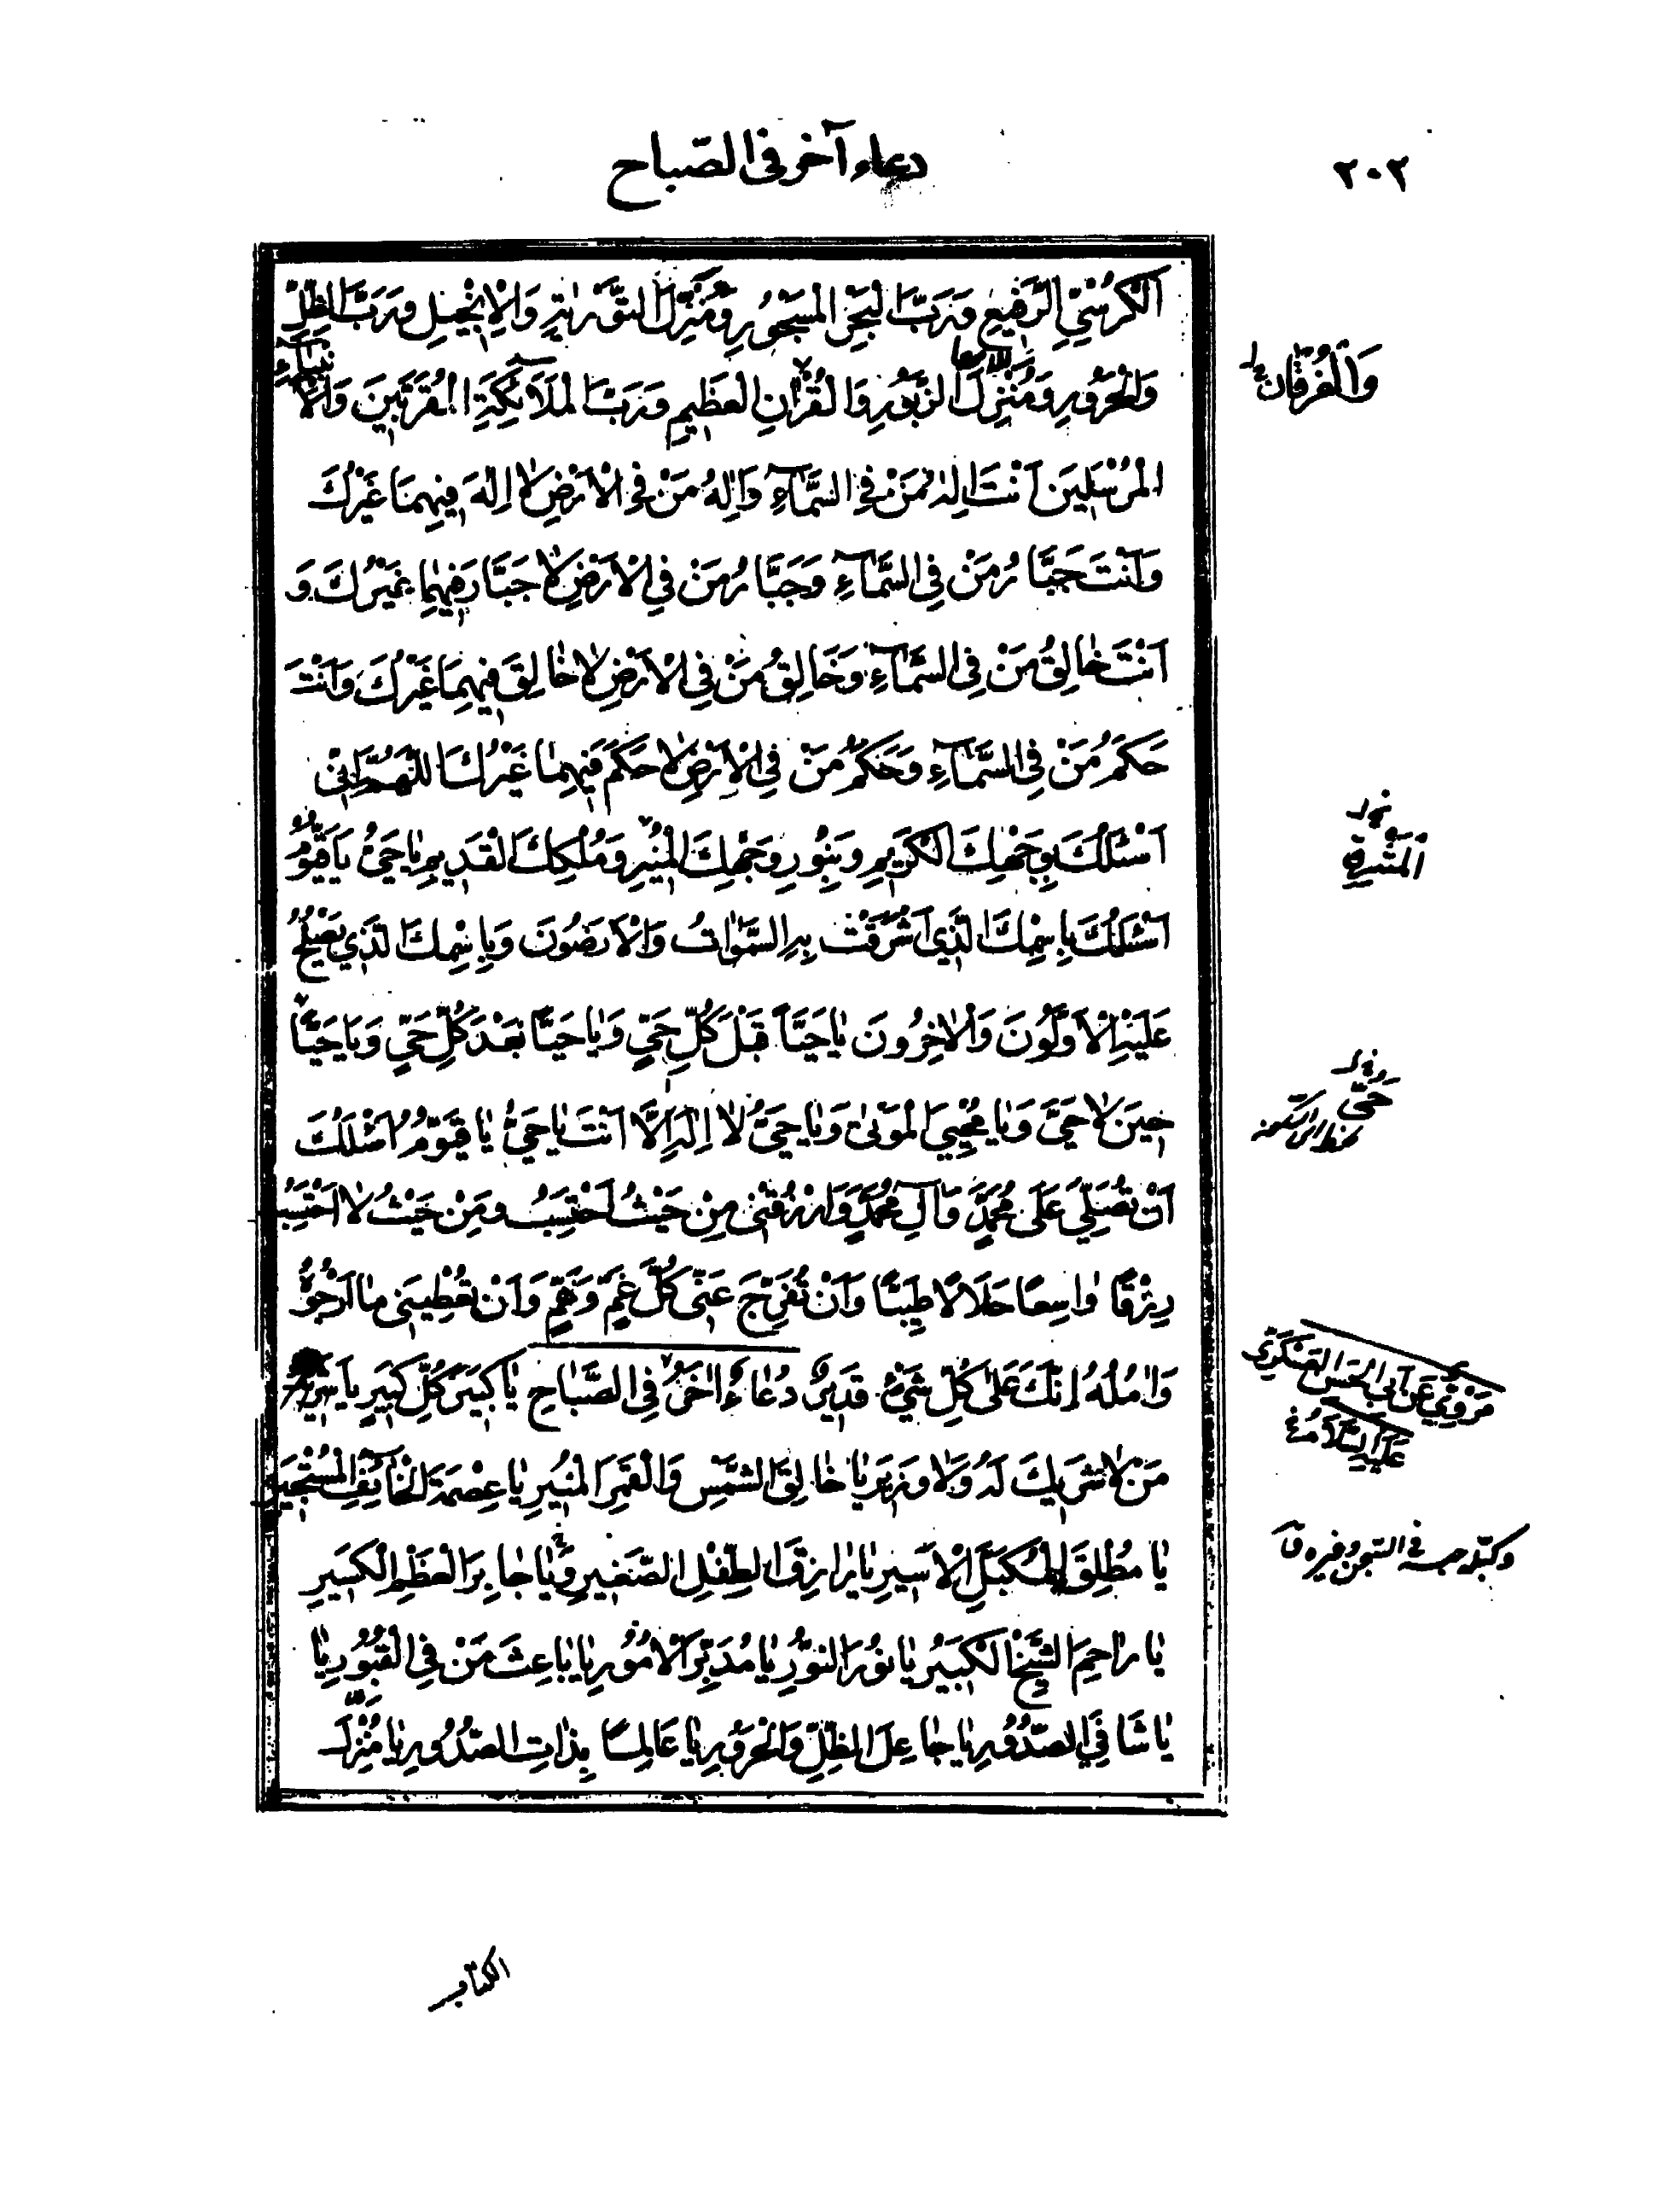 ٢٠٢
دعاء آخر في الصّباح
اَلْكُرْسِيِّ الرَّفِيعِ وَرَبَّ الْبَحْرِ الْمَسْجُورِ وَمُنْزِلَ التَّوْرٰيةِ وَالْاِنْجِيلِ وَرَبَّ الظِّلِّ
وَالْحَرُورِ وَمُنْزِلَ الزَّبُورِ وَالْقُرْاٰنِ الْعَظِيمِ وَرَبَّ الْمَلَائِكَةِ الْمُقَرَّبِينَ وَالْاَنْبِيَاۤءِ
وَالْفُرْقَانِ
الْمُرْسَلِينَ اَنْتَ اِلٰهُ مَنْ فِي السَّمَاۤءِ وَاِلٰهُ مَنْ فِي الْاَرْضِ لَا اِلٰهَ فِيهِمَا غَيْرُكَ
وَاَنْتَ جَبَّارُ مَنْ فِي السَّمَاۤءِ وَجَبَّارُ مَنْ فِي الْاَرْضِ لَا جَبَّارَ فِيهِمَا غَيْرُكَ وَ
اَنْتَ خَالِقُ مَنْ فِي السَّمَاۤءِ وَخَالِقُ مَنْ فِي الْاَرْضِ لَا خَالِقَ فِيهِمَا غَيْرُكَ وَاَنْتَ
حَكَمُ مَنْ فِي السَّمَاۤءِ وَحَكَمُ مَنْ فِي الْاَرْضِ لَا حَكَمَ فِيهِمَا غَيْرُكَ اللّٰهُمَّ اِنِّي
اَسْئَلُكَ بِوَجْهِكَ الْكَرِيمِ وَبِنُورِ وَجْهِكَ الْمُنِيرِ وَمُلْكِكَ الْقَدِيمِ يَا حَيُّ يَا قَيُّومُ
اَسْئَلُكَ بِاسْمِكَ الَّذِي اَشْرَقَتْ بِهِ السَّمٰوَاتُ وَالْاَرَضُونَ وَبِاسْمِكَ الَّذِي يَصْلُحُ
عَلَيْهِ الْاَوَّلُونَ وَالْاٰخِرُونَ يَا حَيًّا قَبْلَ كُلِّ حَيٍّ وَيَا حَيًّا بَعْدَ كُلِّ حَيٍّ وَيَا حَيًّا
حِينَ لَا حَيَّ وَيَا مُحْيِيَ الْمَوْتىٰ وَيَا حَيُّ لَا اِلٰهَ اِلَّا اَنْتَ يَا حَيُّ يَا قَيُّومُ اَسْئَلُكَ
اَنْ تُصَلِّيَ عَلَى مُحَمَّدٍ وَآلِ مُحَمَّدٍ وَارْزُقْنِي مِنْ حَيْثُ اَحْتَسِبُ وَمِنْ حَيْثُ لَا اَحْتَسِبُ
رِزْقًا وَاسِعًا حَلَالًا طَيِّبًا وَاَنْ تُفَرِّجَ عَنِّي كُلَّ غَمٍّ وَهَمٍّ وَاَنْ تُعْطِيَنِي مَا اَرْجُوهُ
وَاٰمُلُهُ اِنَّكَ عَلىٰ كُلِّ شَيْءٍ قَدِيرٌ دُعَاءٌ اٰخَرُ فِي الصَّبَاحِ يَا كَبِيرَ كُلِّ كَبِيرٍ يَا
مَرْوِيٌّ عَنْ اَبِي الْحَسَنِ الْعَسْكَرِيِّ
عَلَيْهِ السَّلَامُ
مَنْ لَا شَرِيكَ لَهُ وَلَا وَزِيرَ يَا خَالِقَ الشَّمْسِ وَالْقَمَرِ الْمُنِيرِ يَا عِصْمَةَ الْخَاۤئِفِ الْمُسْتَجِيرِ
يَا مُطْلِقَ الْمُكَبَّلِ الْاَسِيرِ يَا رَازِقَ الطِّفْلِ الصَّغِيرِ وَيَا جَابِرَ الْعَظْمِ الْكَسِيرِ
يَا رَاحِمَ الشَّيْخِ الْكَبِيرِ يَا نُورَ النُّورِ يَا مُدَبِّرَ الْاُمُورِ يَا بَاعِثَ مَنْ فِي الْقُبُورِ يَا
يَا شَافِيَ الصُّدُورِ يَا جَاعِلَ الظِّلِّ وَالْحَرُورِ يَا عَالِمًا بِذَاتِ الصُّدُورِ يَا مُنْزِلَ
الكتاب